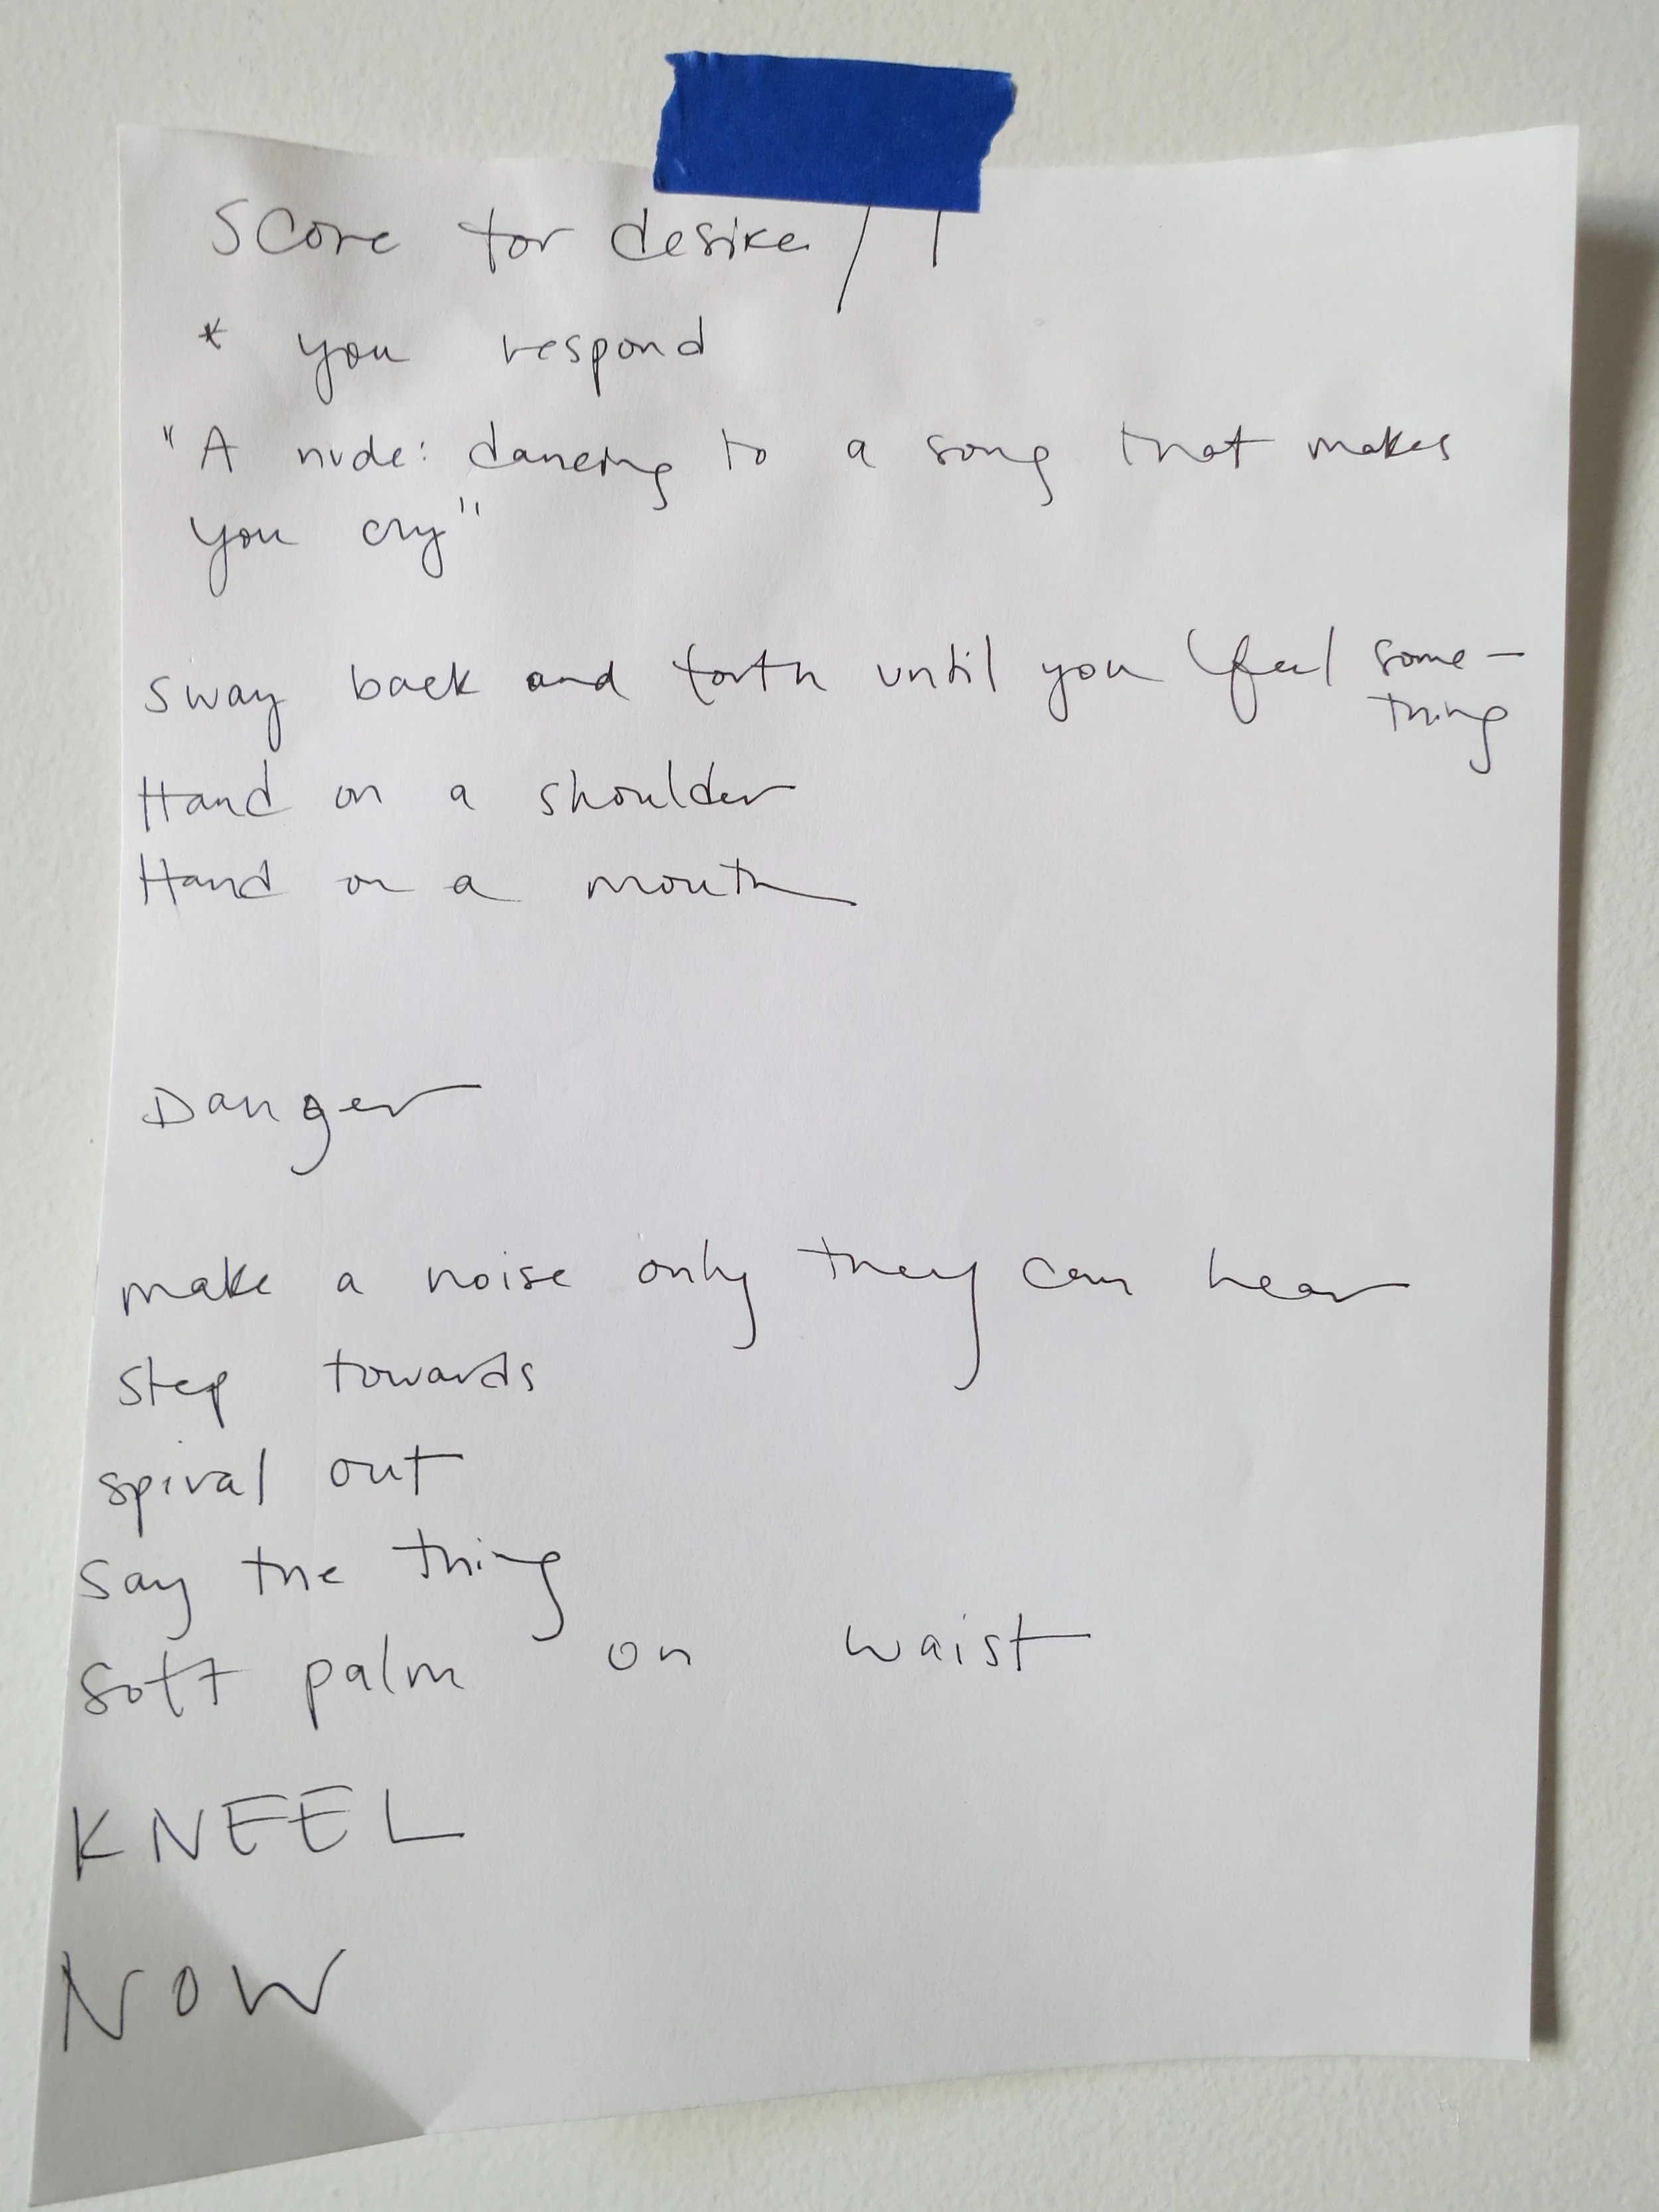 Score for desire //
* you respond
"A nude: dancing to a song that makes
you cry"
sway back and forth until you feel some-
thing
Hand on a shoulder
Hand on a mouth
Danger
make a noise only they can hear
step towards
spiral out
say the thing
soft palm on waist
KNEEL
NOW